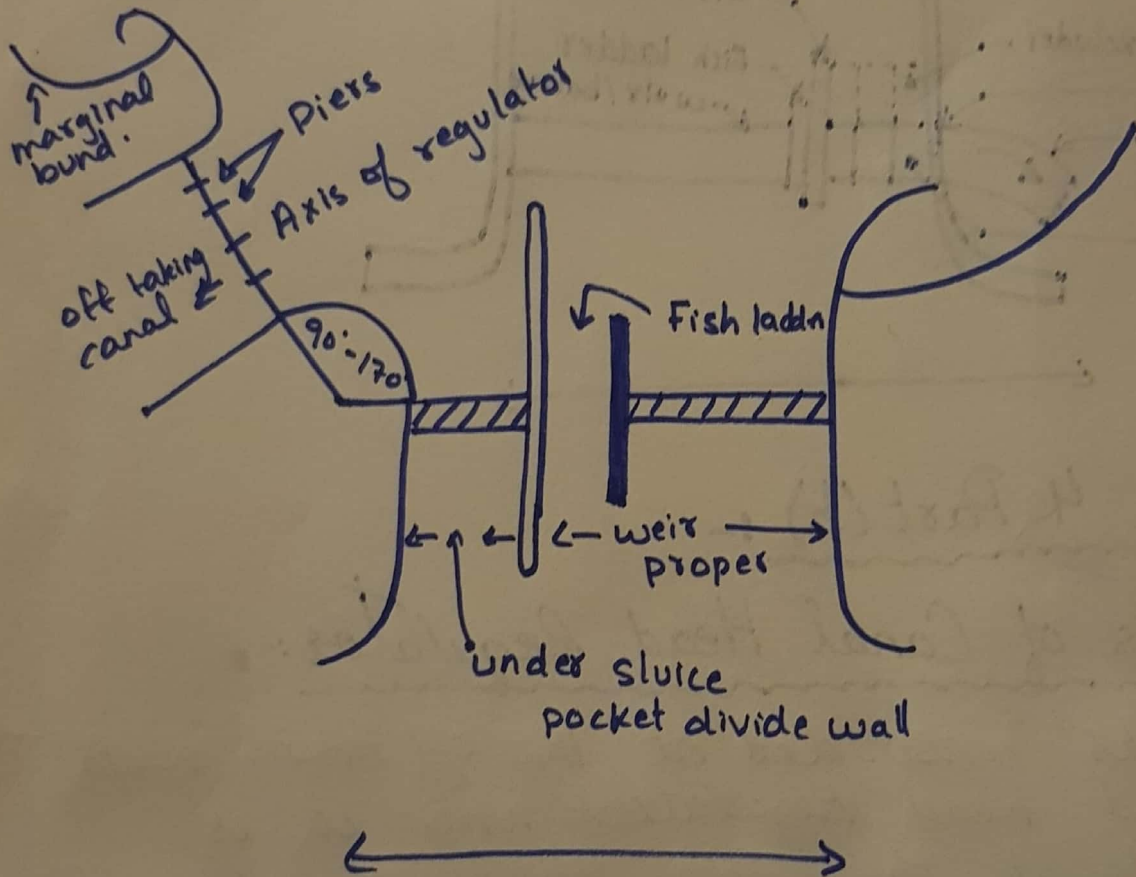 marginal
bund.
Piers
Axis of regulator
off taking
canal
90°-170
Fish laddr
weir
proper
under sluice
pocket divide wall